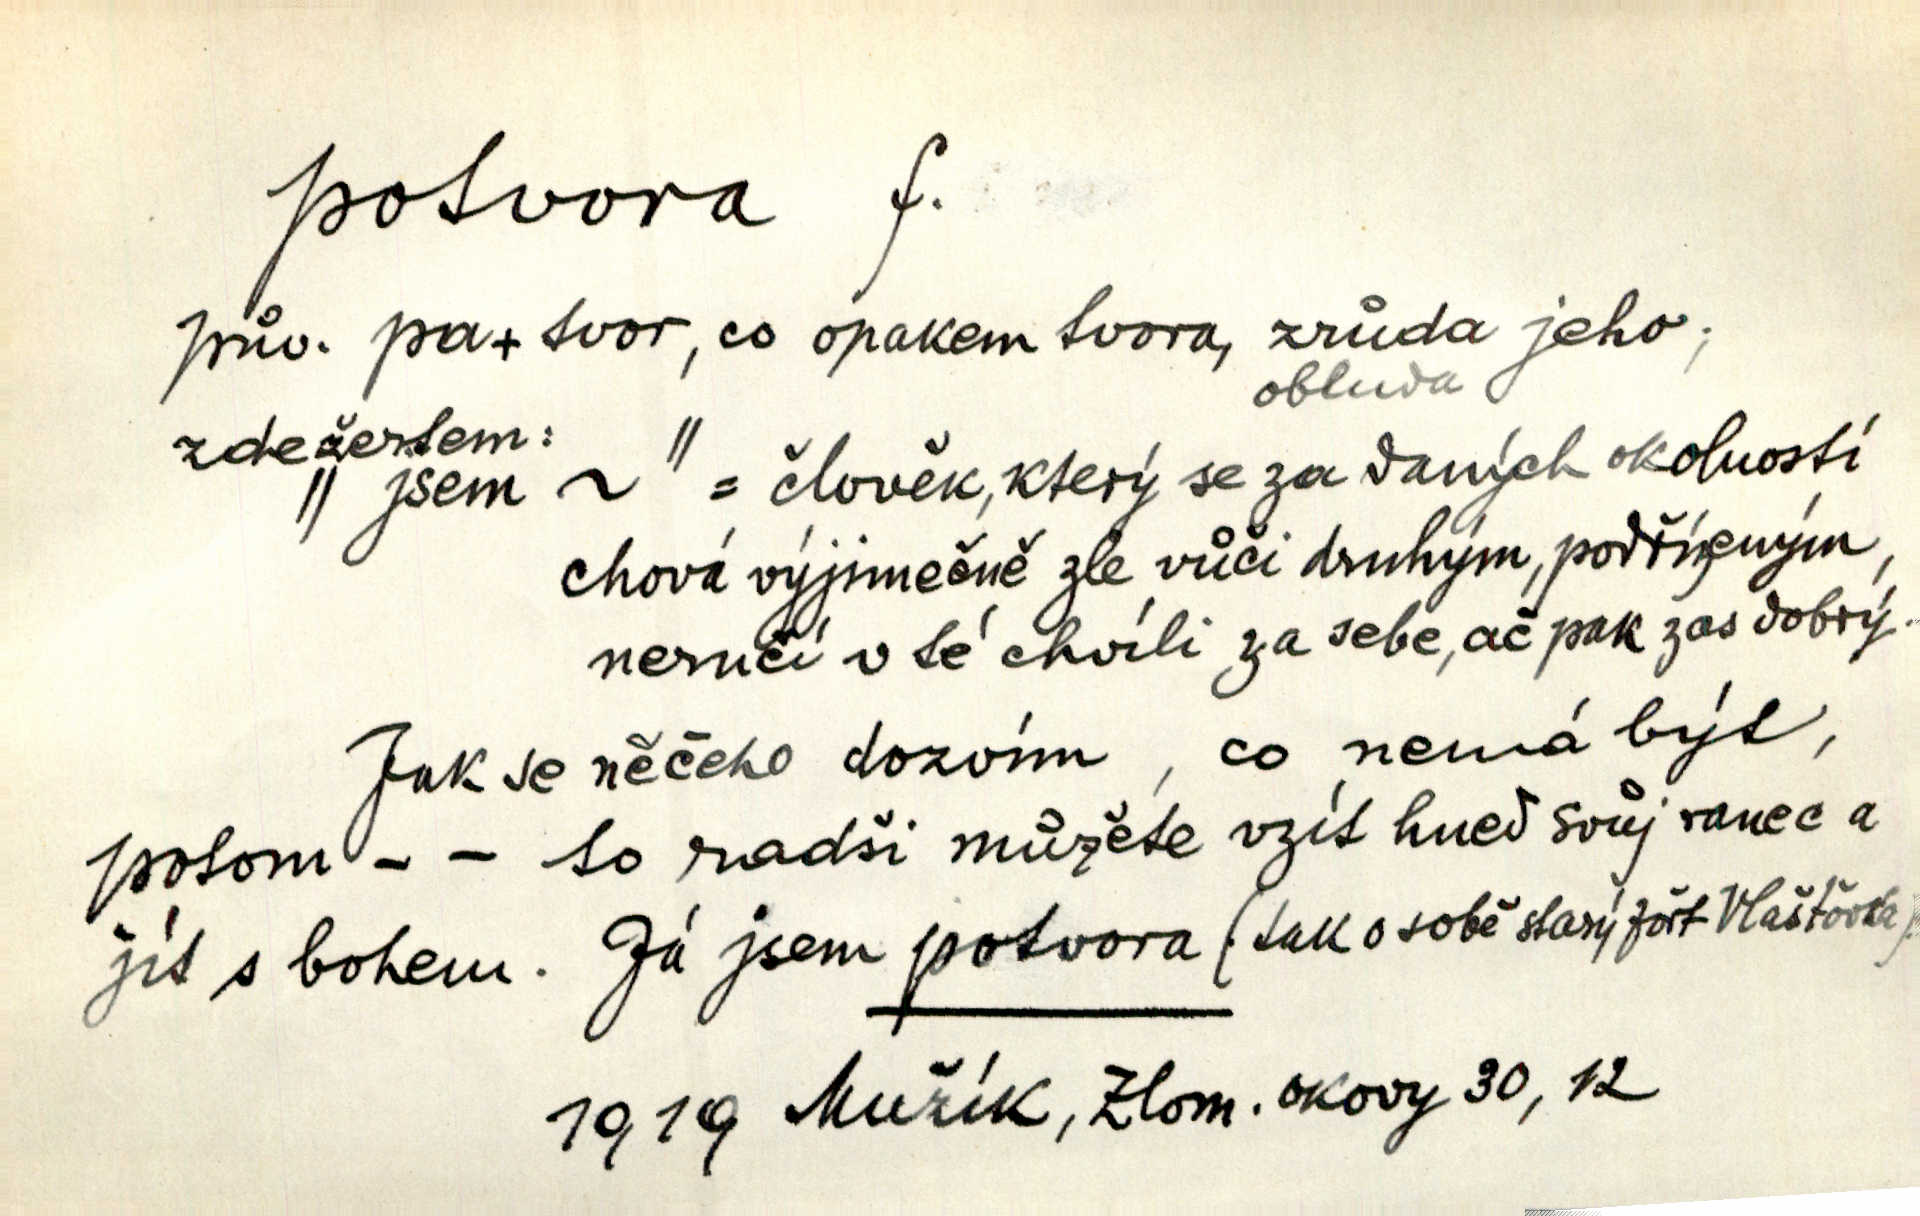 potvora f.
pův. pa + tvor, co opakem tvora, zrůda jeho;
obluda
zde žertem:
"jsem ~" = člověk, který se za daných okolností
chová výjimečně zle vůči druhým, podřízeným,
neručí v té chvíli za sebe, ač pak zas dobrý.
Jak se něčeho dozvím, co nemá být,
potom – – to radši můžete vzít hned svůj ranec a
jít s bohem. Já jsem potvora (tak o sobě starý Vlaštovka)
1919 Mužík, Zlom. okovy 30, 12